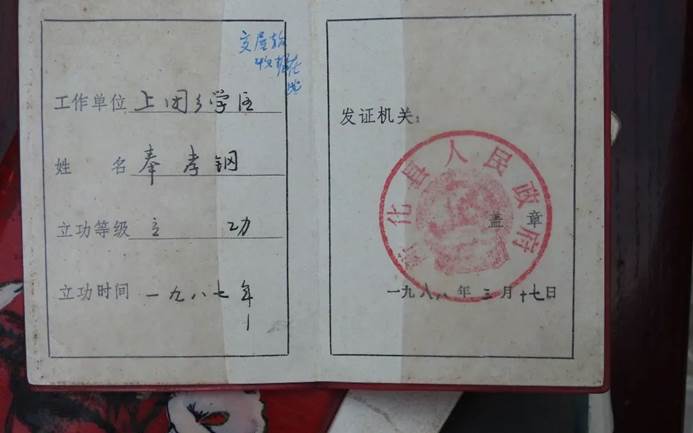 工作单位 上团乡学区
姓 名 奉孝钢
立功等级 立 功
立功时间 一九八七年
发证机关:
化县人民政府
盖 章
一九八八年三月十七日